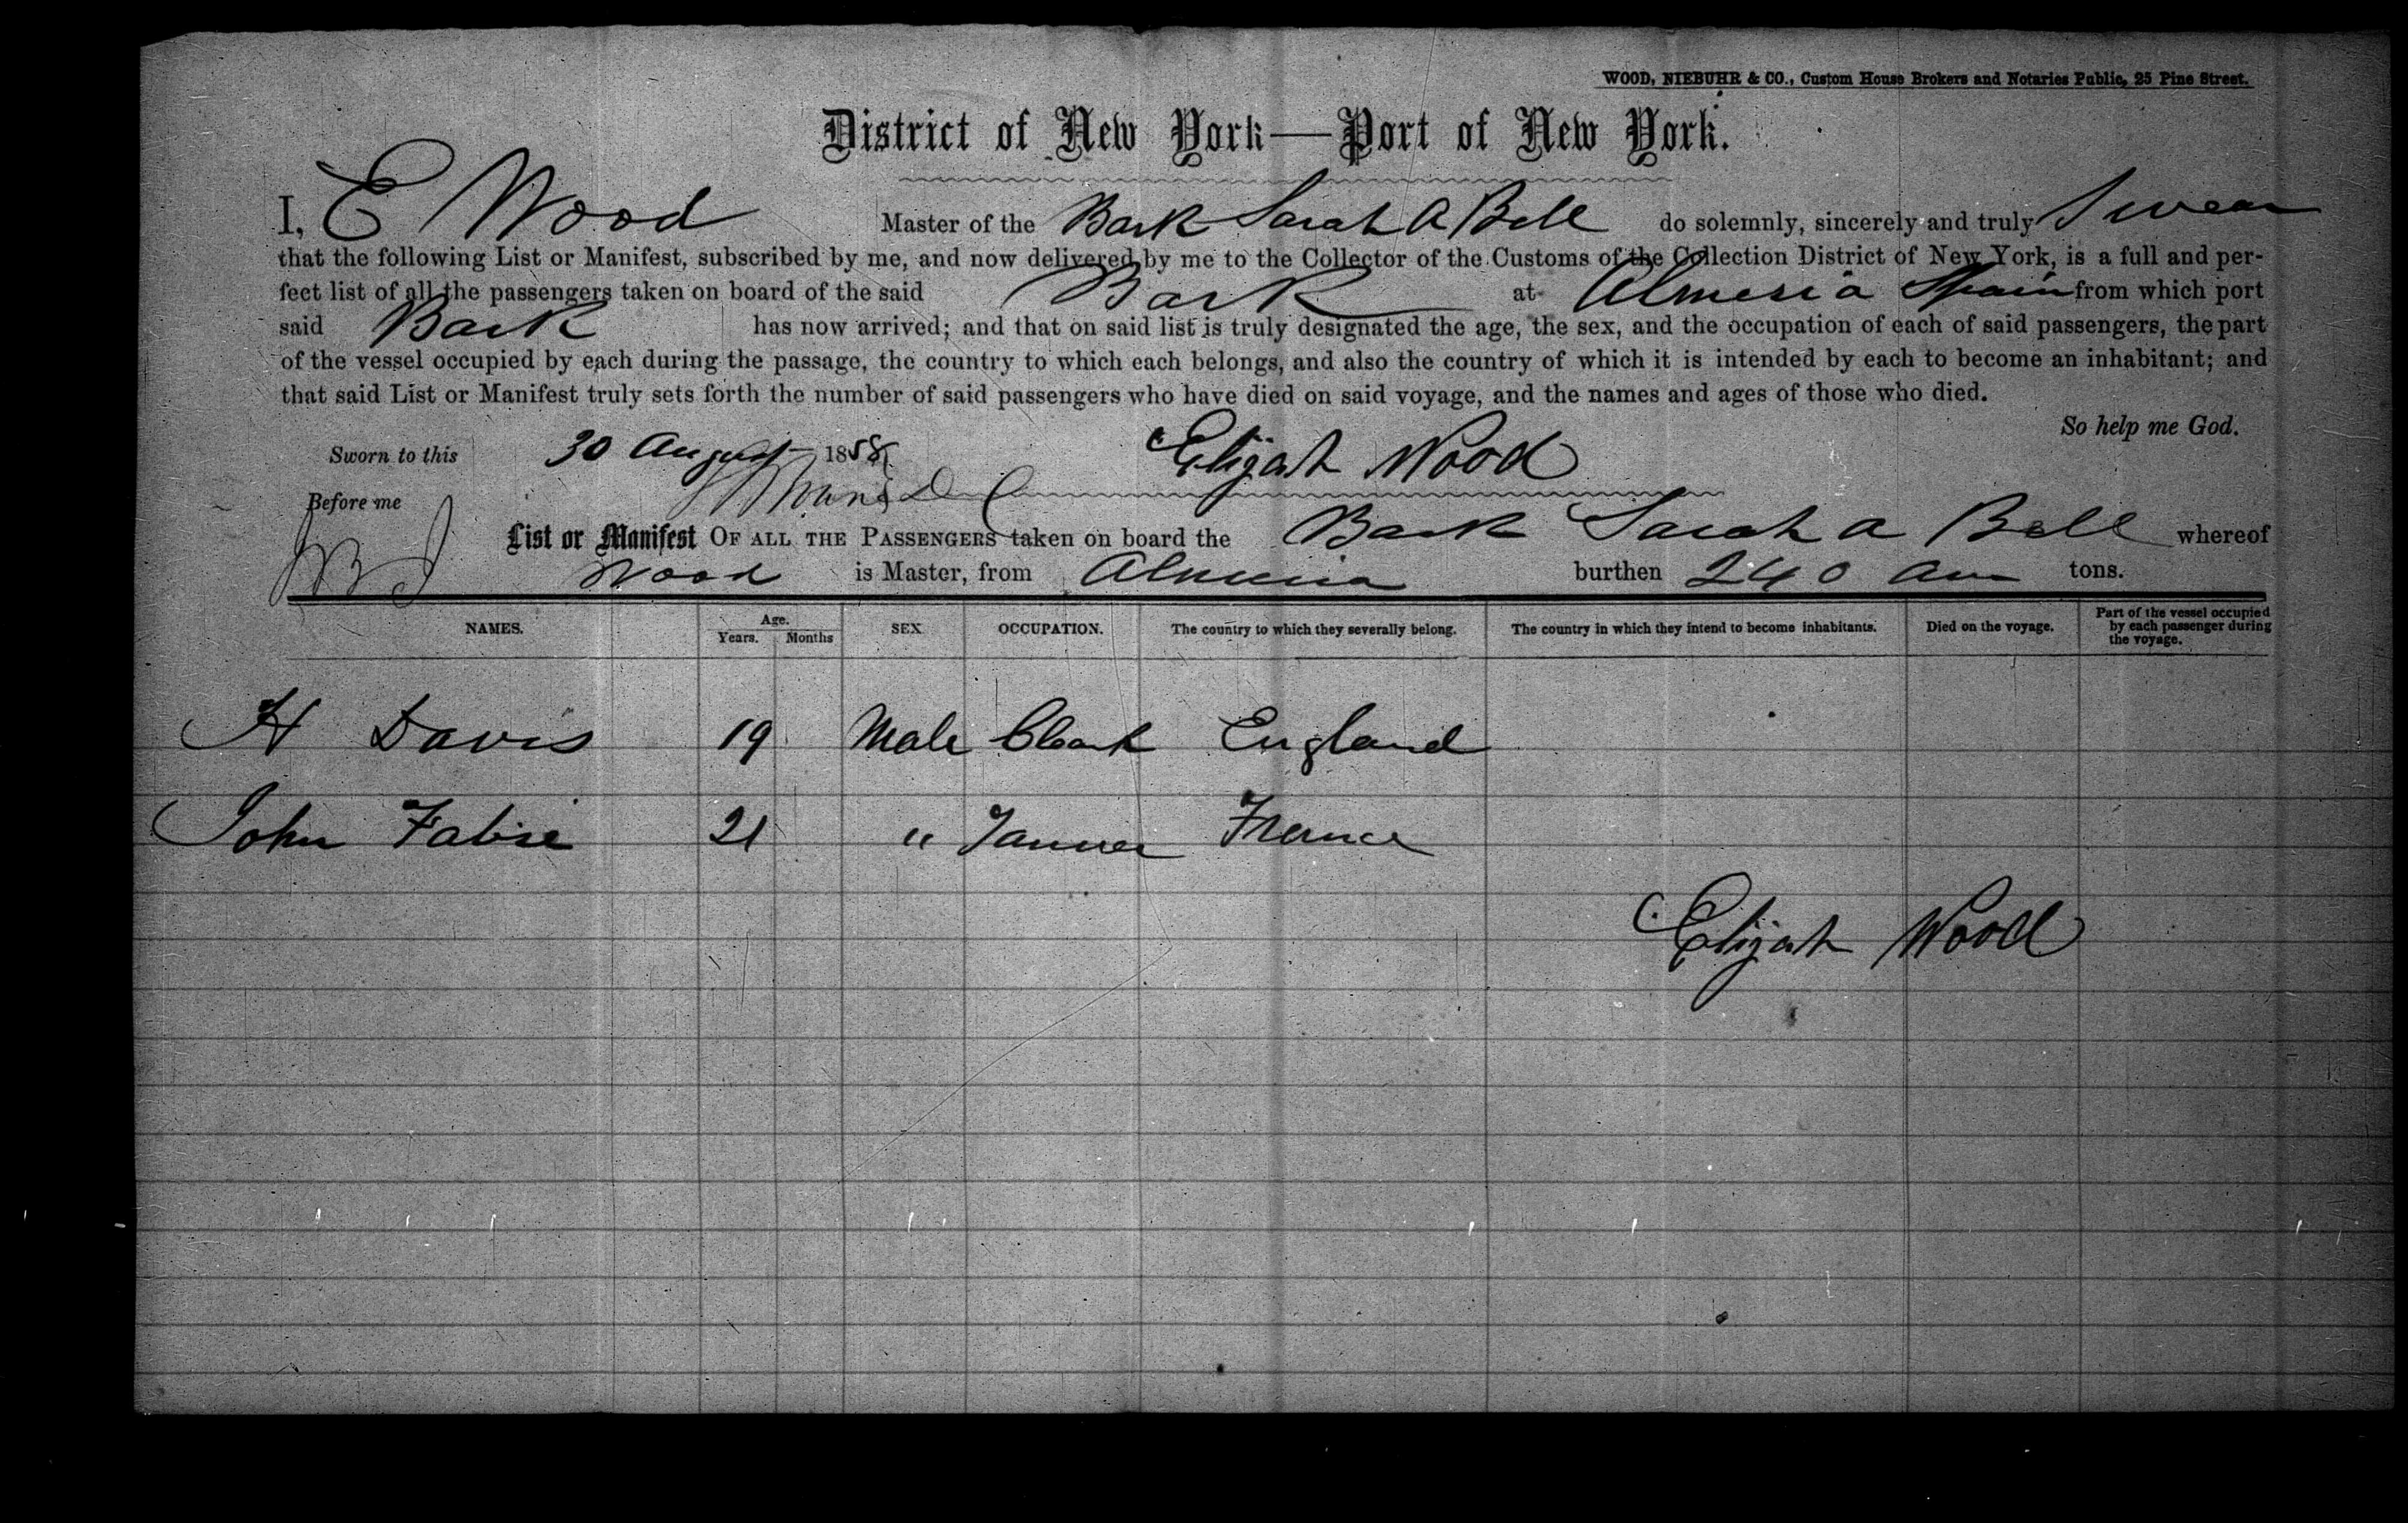 WOOD, NIEBUHR & CO., Custom House Brokers and Notaries Public, 25 Pine Street.
District of New York—Port of New York.
I, E Wood Master of the Bark Sarah A Bell do solemnly, sincerely and truly Swear
that the following List or Manifest, subscribed by me, and now delivered by me to the Collector of the Customs of the Collection District of New York, is a full and per-
fect list of all the passengers taken on board of the said Bark at Almeria Spain from which port
said Bark has now arrived; and that on said list is truly designated the age, the sex, and the occupation of each of said passengers, the part
of the vessel occupied by each during the passage, the country to which each belongs, and also the country of which it is intended by each to become an inhabitant; and
that said List or Manifest truly sets forth the number of said passengers who have died on said voyage, and the names and ages of those who died.
So help me God.
Sworn to this 30 August 1858 Elijah Wood
Before me
List or Manifest OF ALL THE PASSENGERS taken on board the Bark Sarah A Bell whereof
Wood is Master, from Almeria burthen 240 tons.
NAMES. Age. Years. Months SEX. OCCUPATION. The country to which they severally belong. The country in which they intend to become inhabitants. Died on the voyage. Part of the vessel occupied by each passenger during the voyage.
H Davis 19 Male Clark England
John Fabre 21 " Tanner France
Elijah Wood